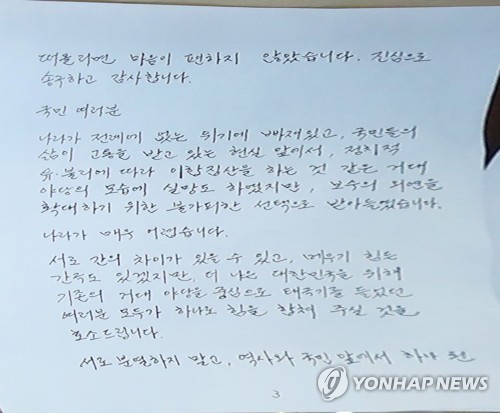 떠올리면 마음이 편하지 않았습니다. 진심으로
송구하고 감사합니다.
국민 여러분
나라가 전례에 없는 위기에 빠져있고, 국민들의
삶이 고통을 받고 있는 현실 앞에서, 정치적
유·불리에 따라 이합집산을 하는 것 같은 거대
야당의 모습에 실망도 하였지만, 보수의 외연을
확대하기 위한 불가피한 선택으로 받아들였습니다.
나라가 매우 어렵습니다.
서로 간의 차이가 있을 수 있고, 메우기 힘든
간극도 있겠지만, 더 나은 대한민국을 위해
기존의 거대 야당을 중심으로 태극기를 들었던
여러분 모두가 하나로 힘을 합쳐 주실 것을
호소드립니다.
서로 분열하지 말고, 역사와 국민 앞에서 하나 된
3
YONHAP NEWS